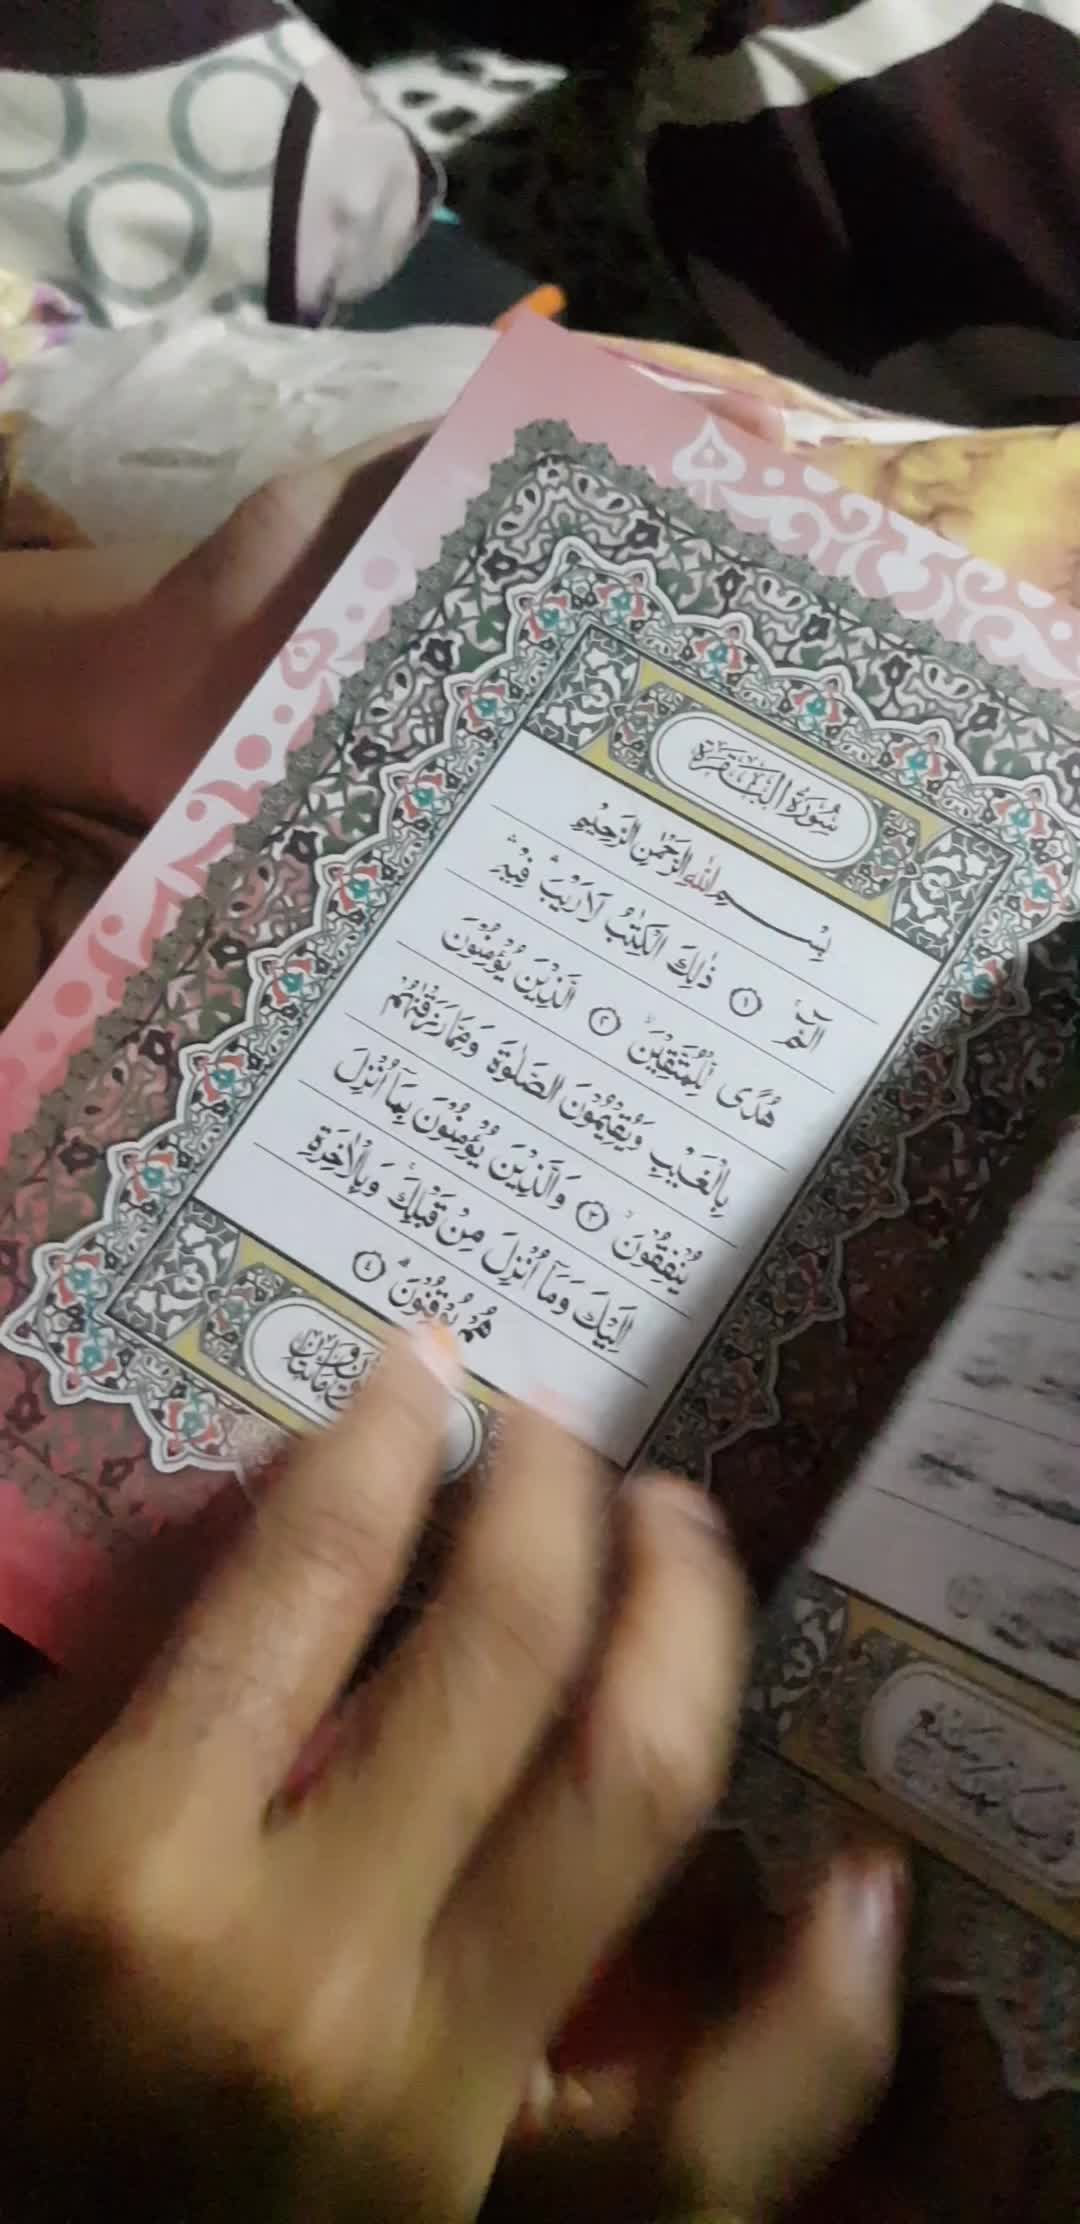 سُورَةُ الْبَقَرَةِ
بِسْمِ اللّٰهِ الرَّحْمٰنِ الرَّحِيْمِ
الۤمّۤ ۚ ١ ذٰلِكَ الْكِتٰبُ لَا رَيْبَ ۛ فِيْهِ ۛ
هُدًى لِّلْمُتَّقِيْنَۙ ٢ الَّذِيْنَ يُؤْمِنُوْنَ
بِالْغَيْبِ وَيُقِيْمُوْنَ الصَّلٰوةَ وَمِمَّا رَزَقْنٰهُمْ
يُنْفِقُوْنَۙ ٣ وَالَّذِيْنَ يُؤْمِنُوْنَ بِمَآ اُنْزِلَ
اِلَيْكَ وَمَآ اُنْزِلَ مِنْ قَبْلِكَۚ وَبِالْاٰخِرَةِ
هُمْ يُوْقِنُوْنَۗ ٤